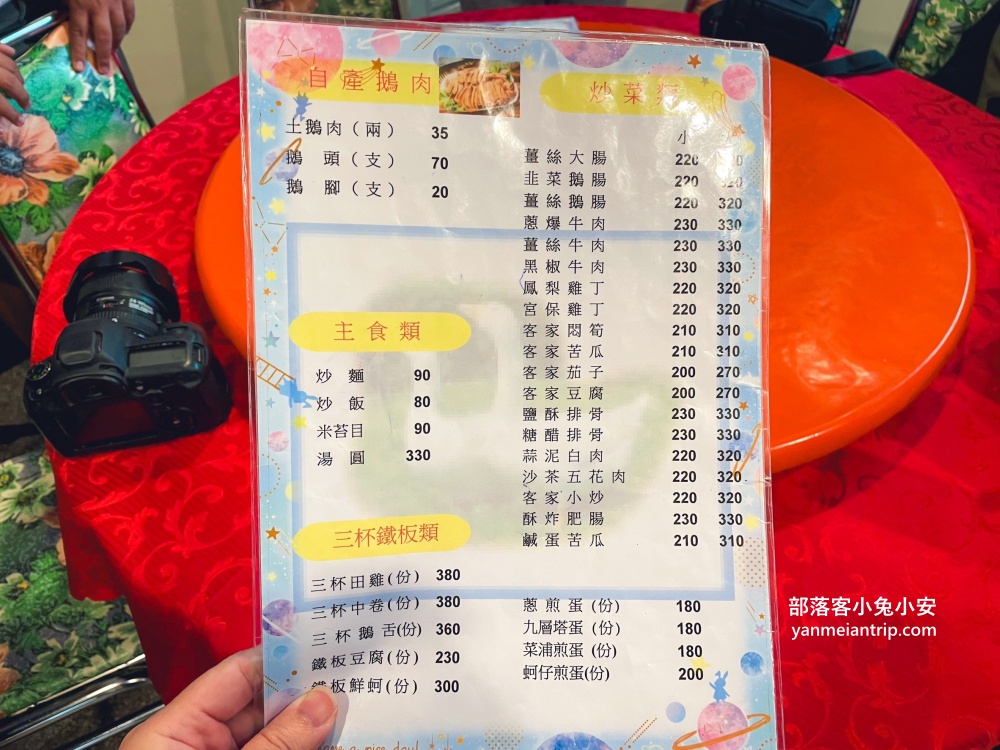 自產鵝肉
土鵝肉（兩） 35
鵝 頭（支） 70
鵝 腳（支） 20
主食類
炒 麵 90
炒 飯 80
米苔目 90
湯 圓 330
三杯鐵板類
三杯田雞(份) 380
三杯中卷(份) 380
三杯鵝舌(份) 360
鐵板豆腐(份) 230
鐵板鮮蚵(份) 300
炒菜類
小
薑絲大腸 220
韭菜鵝腸 220 320
薑絲鵝腸 220 320
蔥爆牛肉 230 330
薑絲牛肉 230 330
黑椒牛肉 230 330
鳳梨雞丁 220 320
宮保雞丁 220 320
客家悶筍 210 310
客家苦瓜 210 310
客家茄子 200 270
客家豆腐 200 270
鹽酥排骨 230 330
糖醋排骨 230 330
蒜泥白肉 220 320
沙茶五花肉 220 320
客家小炒 220 320
酥炸肥腸 230 330
鹹蛋苦瓜 210 310
蔥煎蛋(份) 180
九層塔蛋(份) 180
菜浦煎蛋(份) 180
蚵仔煎蛋(份) 200
部落客小兔小安
yanmeiantrip.com